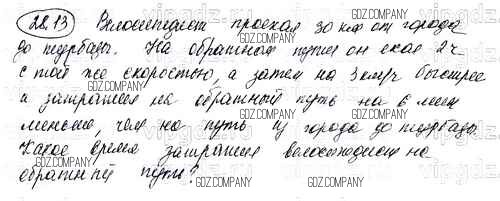 22.13 Велосипедист проехал 30 км от города
до турбазы. На обратном пути он ехал 2 ч
с той же скоростью, а затем на 3 км/ч быстрее
и затратил на обратный путь на 6 мин
меньше, чем на путь из города до турбазы.
Какое время затратил велосипедист на
обратный путь?
GDZ.COMPANY